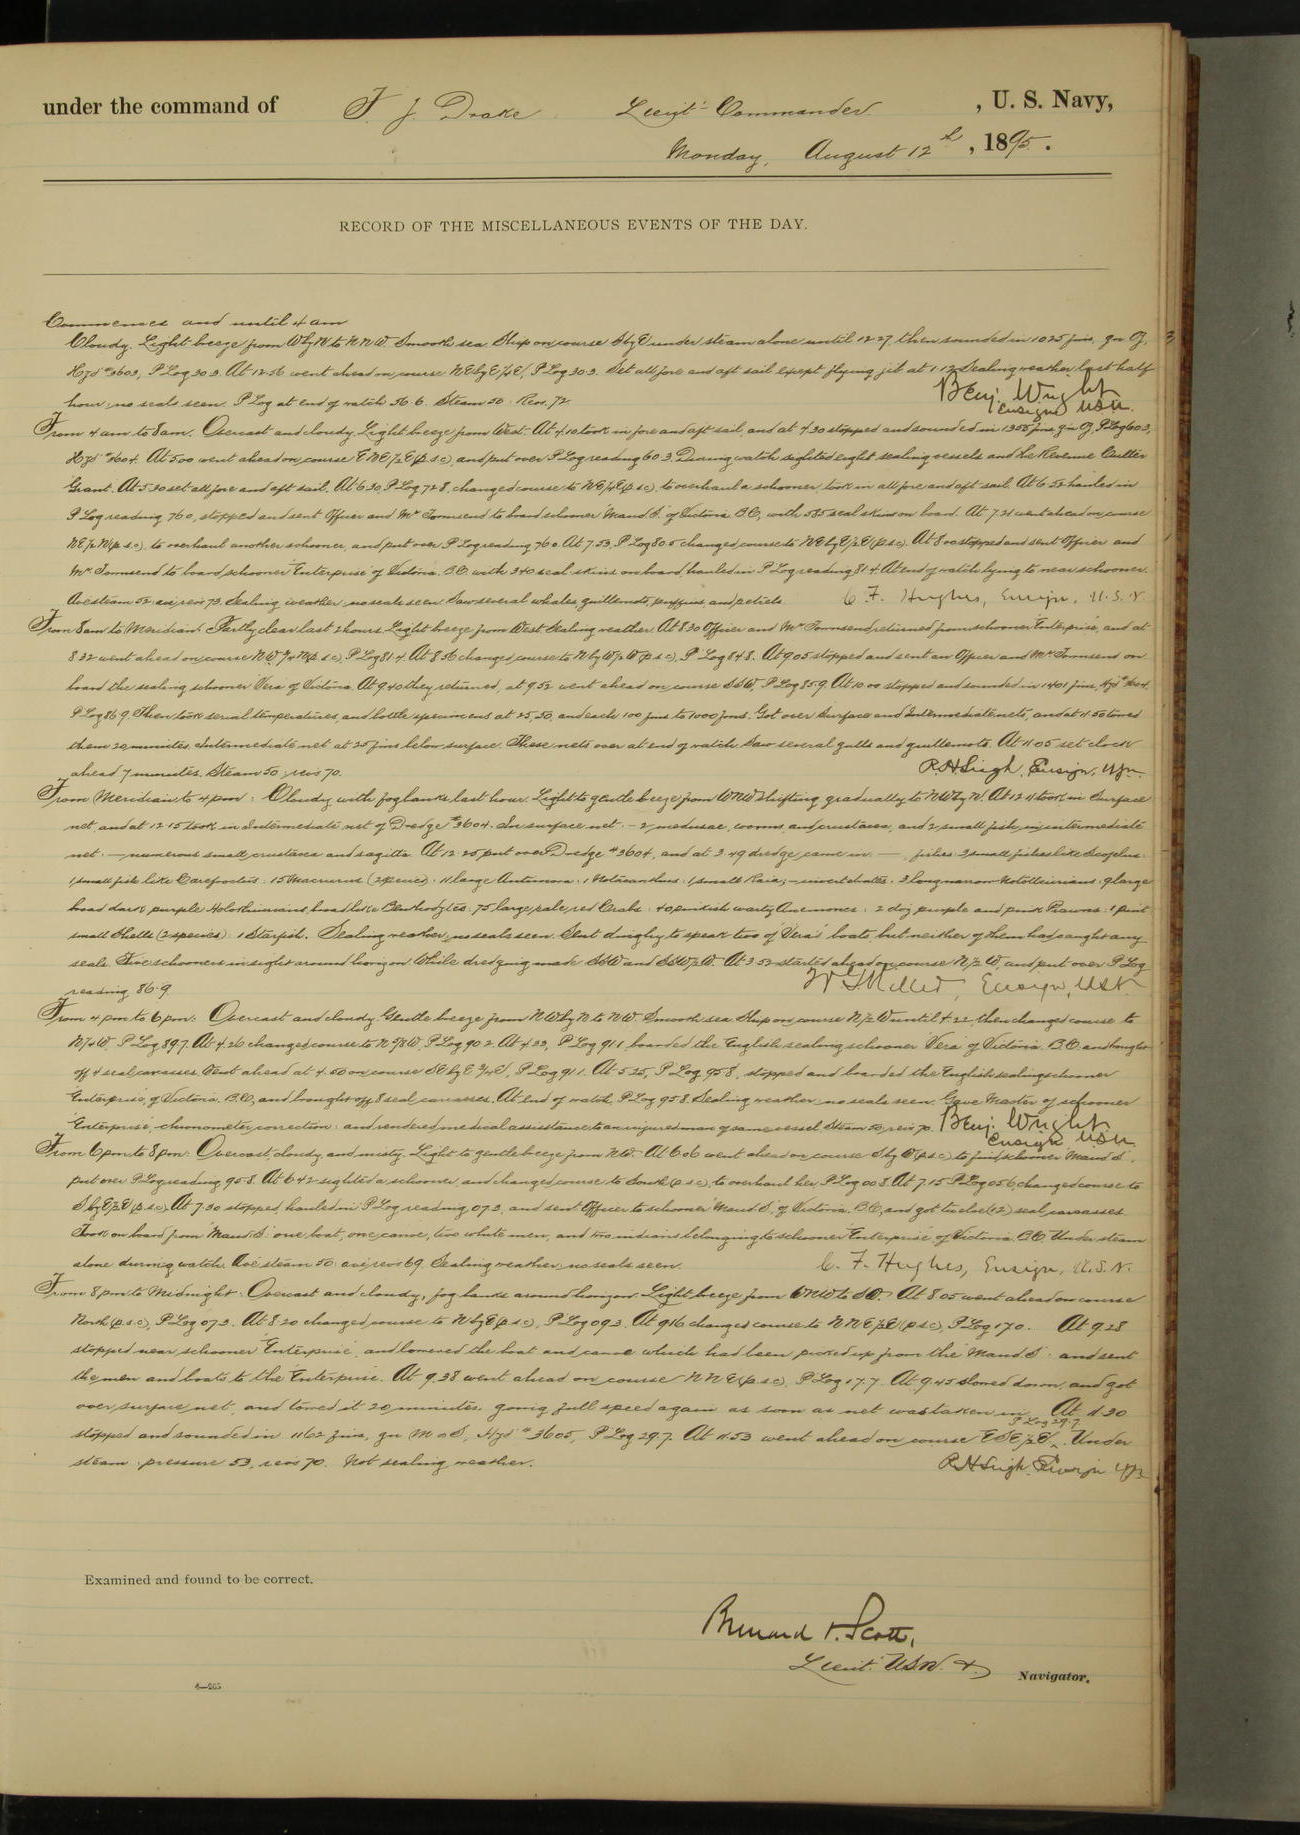 under the command of F. J. Drake Lieut-Commander , U. S. Navy,
Monday, August 12th , 1895 .
RECORD OF THE MISCELLANEOUS EVENTS OF THE DAY.
Commences and until 4 am
Cloudy. Light breeze from WbyN to NNW Smooth sea Ship on course SbyE under steam alone until 12 27, then sounded in 1025 fms, gn Oz,
Hyd # 3603, P Log 30 3. At 12 56 went ahead on course NEbyE 1/4 E, P Log 30 3. Set all fore and aft sail except flying jib at 1 12 Sealing weather last half
hour; no seals seen. P Log at end of watch 56 6. Steam 50. Revs. 72
Benj. Wright
Ensign USN.
From 4 am to 8 am. Overcast and cloudy. Light breeze from West. At 4.10 took in fore and aft sail, and at 4 30 stopped and sounded in 1355 fms gn Oz, P Log 60 3,
Hyd # 3604. At 5 00 went ahead on course ENE 1/2 E (p s c), and put over P Log reading 60 3. During watch sighted eight sealing vessels and the Revenue Cutter
Grant. At 5 30 set all fore and aft sail. At 6 30, P Log 72 8, changed course to NE 1/4 E (p s c), to overhaul a schooner, took in all fore and aft sail. At 6 52 hauled in
P Log reading 76 0, stopped and sent Officer and Mr Townsend to board schooner Maud S. of Victoria B C, with 585 seal skins on board. At 7.21 went ahead on course
NE 1/2 N (p s c), to overhaul another schooner, and put over P Log reading 76 0 At 7.53, P Log 80 5 changed course to NEbyE 1/2 E (p s c). At 8 00 stopped and sent Officer and
Mr Townsend to board schooner Enterprise of Victoria, B C with 340 seal skins on board, hauled in P Log reading 81 4. At end of watch lying to near schooner.
Ave steam 52 ave revs 73. Sealing weather, no seals seen Saw several whales, guillemots, puffins, and petrels.
C. F. Hughes, Ensign, U. S. N.
From 8 am to Meridian: Partly clear last 2 hours. Light breeze from West. Sealing weather At 8 30 Officer and Mr Townsend returned from schooner Enterprise, and at
8 32 went ahead on course NW 3/4 N (p s c), P Log 81 4. At 8 56 changed course to NbyW 1/2 W (p s c), P Log 84 8. At 9 05 stopped and sent an Officer and Mr Townsend on
board the sealing schooner Vera of Victoria. At 9 40 they returned, at 9 52 went ahead on course SSW, P Log 85.9. At 10 00 stopped and sounded in 1401 fms, Hyd # 3604,
P Log 86 9. Then took serial temperatures, and bottle specimens at 25, 50, and each 100 fms to 1000 fms. Got over Surface and Intermediate nets, and at 11 50 towed
them 20 minutes. Intermediate net at 25 fms below surface. These nets over at end of watch Saw several gulls and guillemots. At 11 05 set clock
ahead 7 minutes. Steam 50, revs 70.
R H Leigh, Ensign, USN.
From Meridian to 4 pm: Cloudy with fog banks last hour. Light to gentle breeze from WNW shifting gradually to NWbyN. At 12 11 took in Surface
net, and at 12 15 took in Intermediate net of Dredge # 3604. In surface net:— 2 medusae, worms, and crustacea, and 2 small fish, in intermediate
net:— numerous small crustacea and sagitta. At 12 25 put over Dredge # 3604, and at 3 49 dredge came in:— fishes: 3 small fishes like Scopelus:
1 small fish like Careproctus: 15 Macrurus (2 species): 11 large Antimora: 1 Notacanthus: 1 small Raia;— invertebrates: 3 long narrow Holothurians: 9 large
broad dark purple Holothurians, : 75 large, pale, red Crabs: 40 pinkish warty Anemones: 2 doz purple and pink Prawns: 1 pint
small Shells (2 species): 1 Starfish. Sealing weather, no seals seen. Sent dinghy to speak two of Vera's boats but neither of them had caught any
seals. Five schooners in sight around horizon While dredging made SSW and SSW 1/2 W. At 3 52 started ahead on course N 1/2 W, and put over P Log
reading 86.9.
W G Miller, Ensign, USN.
From 4 pm to 6 pm: Overcast and cloudy. Gentle breeze from NWbyN to NW. Smooth sea Ship on course N 1/2 W until 4.22, then changed course to
N 1/4 W, P Log 89.7. At 4.26 changed course to N 7/8 W P Log 90 2. At 4 33, P Log 91 1 boarded the English sealing schooner Vera of Victoria. B C. and brought
off 4 seal carcasses. Went ahead at 4.50 on course SEbyE 3/4 E, P Log 91 1. At 5 25, P Log 95 8, stopped and boarded the English sealing schooner
Enterprise, of Victoria, B C, and brought off 8 seal carcasses. At end of watch, P Log 95 8. Sealing weather, no seals seen. Gave Master of schooner
Enterprise, chronometer correction: and rendered medical assistance to an injured man of same vessel Steam 50, revs 70.
Benj. Wright
Ensign USN
From 6 pm to 8 pm: Overcast, cloudy and misty. Light to gentle breeze from NW. At 6 06 went ahead on course SbyW (p s c) to find schooner Maud S.
put over P Log reading 95 8. At 6 42 sighted a schooner, and changed course to South (p s c), to overhaul her, P Log 00 8. At 7 15 P Log 05 6, changed course to
SbyE 1/2 E (p s c). At 7.30 stopped, hauled in P Log reading 07 3, and sent Officer to schooner Maud S, of Victoria. B C, and got twelve (12) seal carcasses
Took on board from Maud S. one boat, one canoe, two white men, and two indians belonging to schooner Enterprise of Victoria. B C. Under steam
alone during watch. Ave steam 50: ave revs 69. Sealing weather, no seals seen.
C. F. Hughes, Ensign, U. S. N.
From 8 pm to Midnight: Overcast and cloudy, fog banks around horizon Light breeze from WNW to SW. At 8 05 went ahead on course
North (p s c), P Log 07 3. At 8 20 changed course to NbyE (p s c), P Log 09 3. At 9 16 changed course to NNE 1/2 E (p s c), P Log 17 0. At 9 28
stopped near schooner Enterprise, and lowered the boat and canoe which had been picked up from the Maud S: and sent
the men and boats to the Enterprise. At 9 38 went ahead on course NNE (p s c), P Log 17.7. At 9 45 slowed down, and got
over surface net, and towed it 20 minutes; going full speed again as soon as net was taken in. At 11 30
P Log 29.7
stopped and sounded in 1162 fms, gn M & S, Hyd # 3605, P Log 29 7. At 11.53 went ahead on course ESE 1/2 E . Under
steam: pressure 53, revs 70. Not sealing weather.
R H Leigh, Ensign USN
Examined and found to be correct.
Bernard O. Scott,
Lieut. USN. &
Navigator.